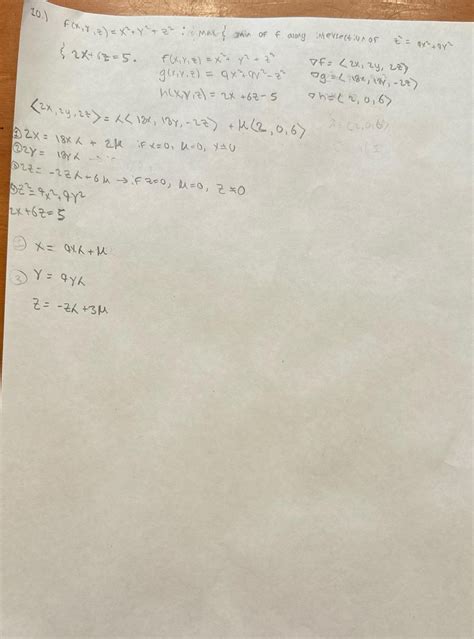 20.) f(x,y,z)=x²+y²+z² : max { min of f along intersection of z²=9x²+9y²
{ 2x+6z=5. f(x,y,z)=x²+y²+z² ∇f=⟨2x,2y,2z⟩
g(x,y,z)=9x²+9y²-z² ∇g=⟨18x,18y,-2z⟩
h(x,y,z)=2x+6z-5 ∇h=⟨2,0,6⟩
⟨2x,2y,2z⟩=λ⟨18x,18y,-2z⟩+μ⟨2,0,6⟩
2x=18xλ+2μ if x=0, μ=0,
2y=18yλ
2z=-2zλ+6μ → if z=0, μ=0,
z²=9x²+9y²
2x+6z=5
x=9xλ+μ
y=9yλ
z=-zλ+3μ